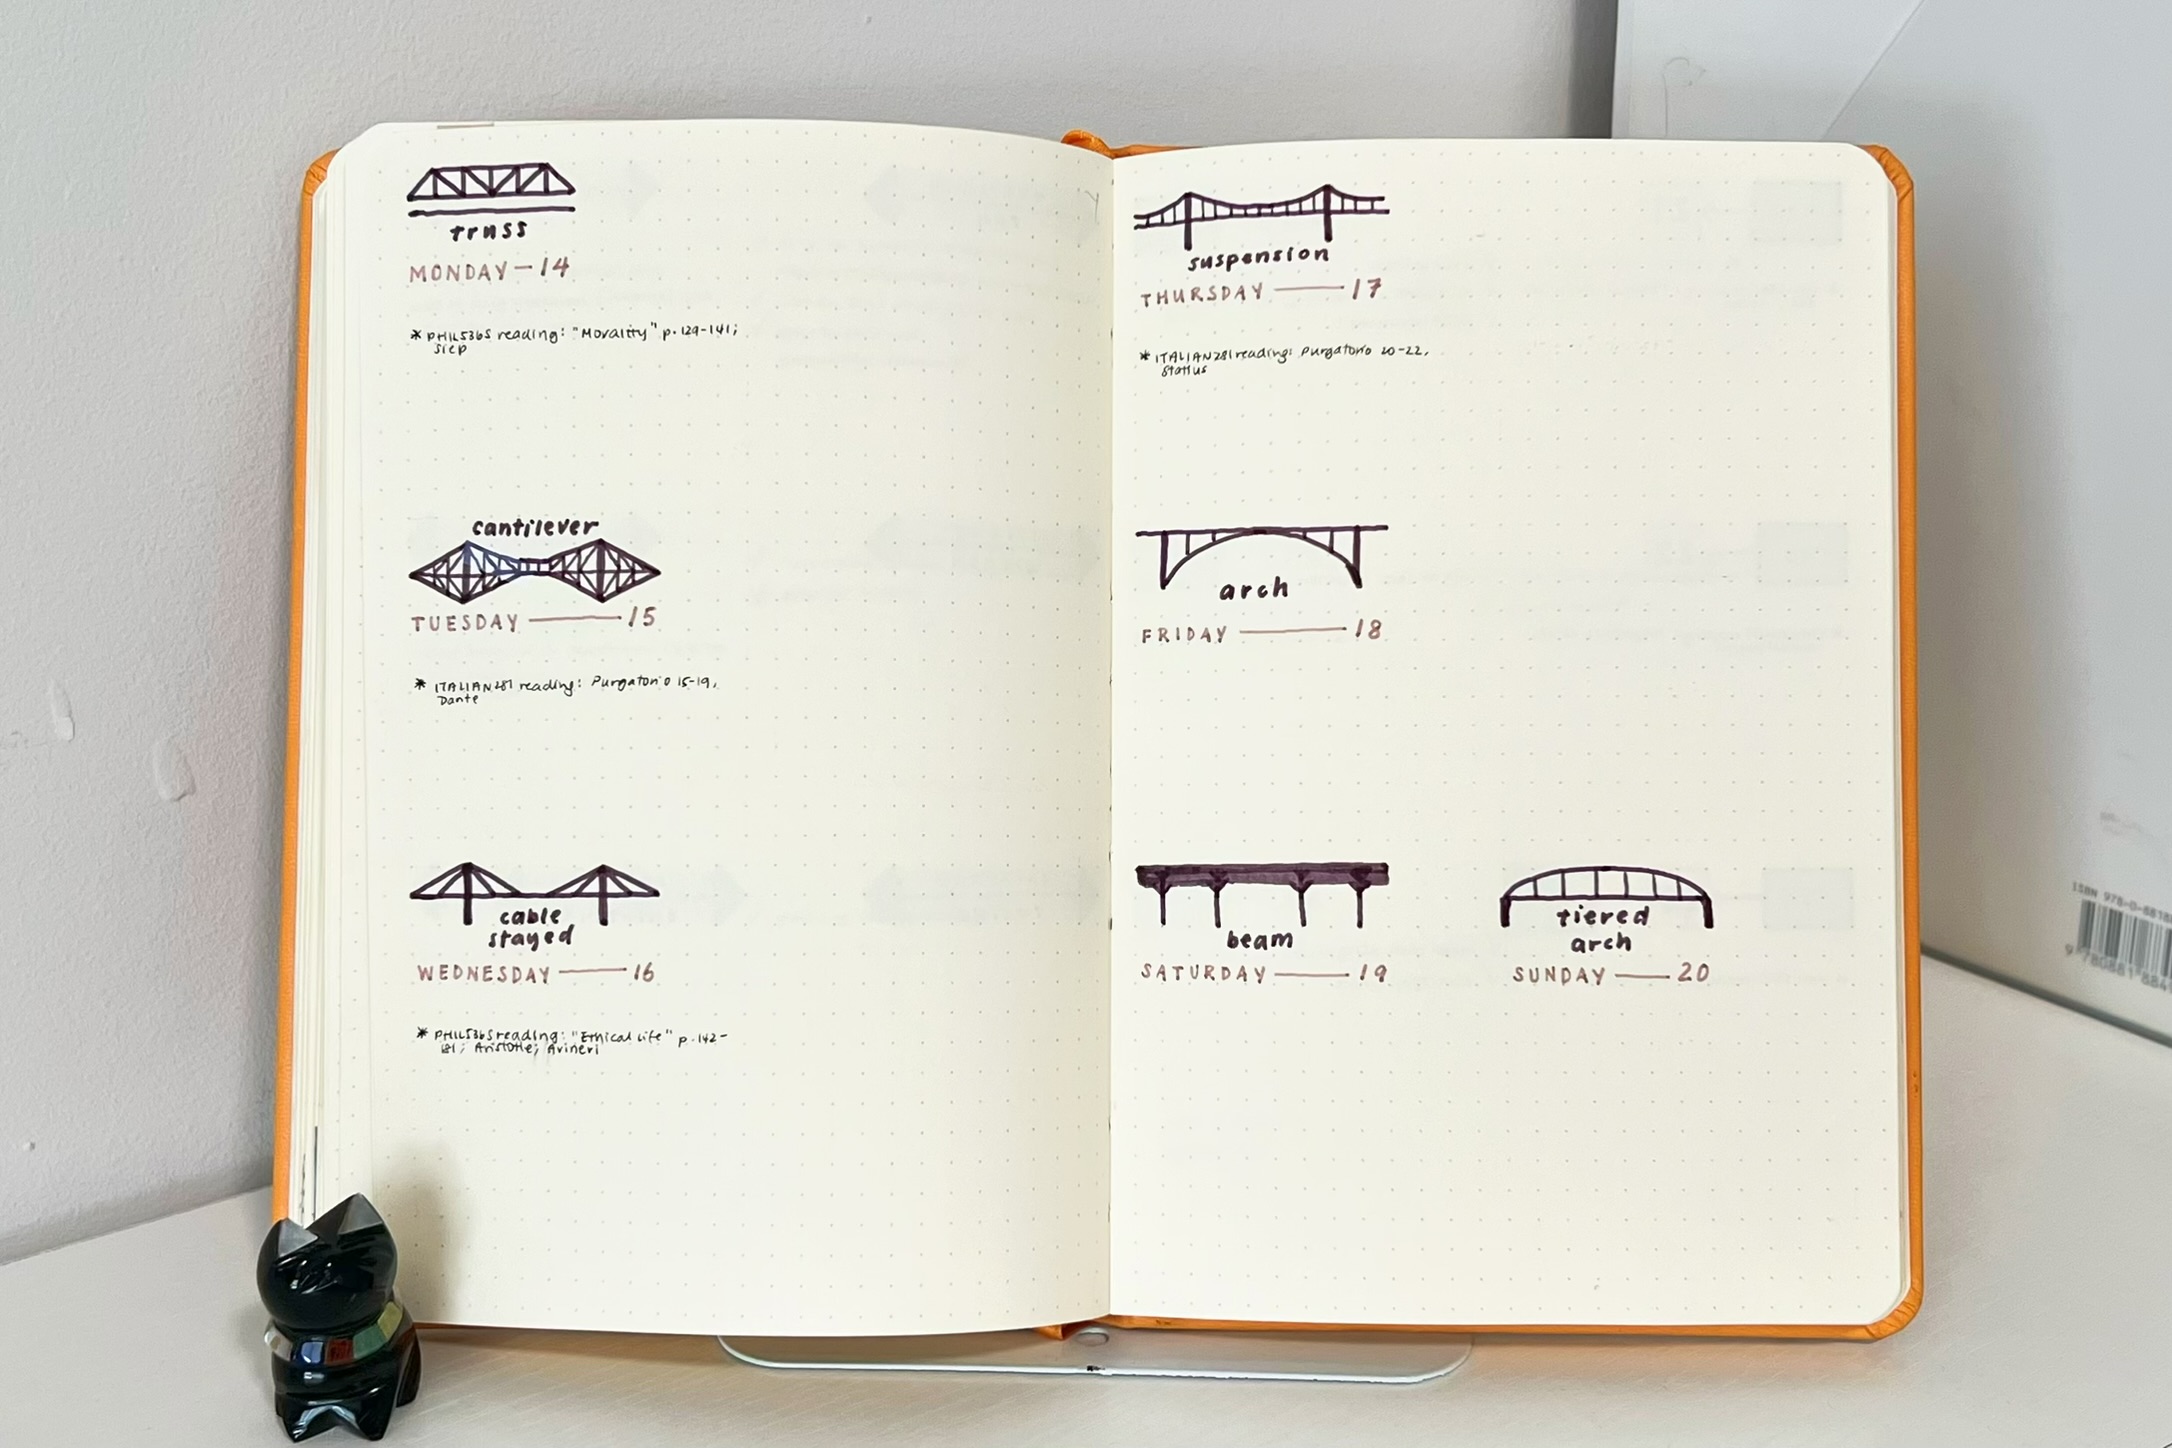 truss
MONDAY — 14
* PHIL536S reading: "Morality" p. 129-141;
Siep
cantilever
TUESDAY — 15
* ITALIAN281 reading: Purgatorio 15-19,
Dante
cable
stayed
WEDNESDAY — 16
* PHIL536S reading: "Ethical Life" p. 142-
181; Aristotle; Avineri
suspension
THURSDAY — 17
* ITALIAN281 reading: Purgatorio 20-22,
Statius
arch
FRIDAY — 18
beam
SATURDAY — 19
tiered
arch
SUNDAY — 20